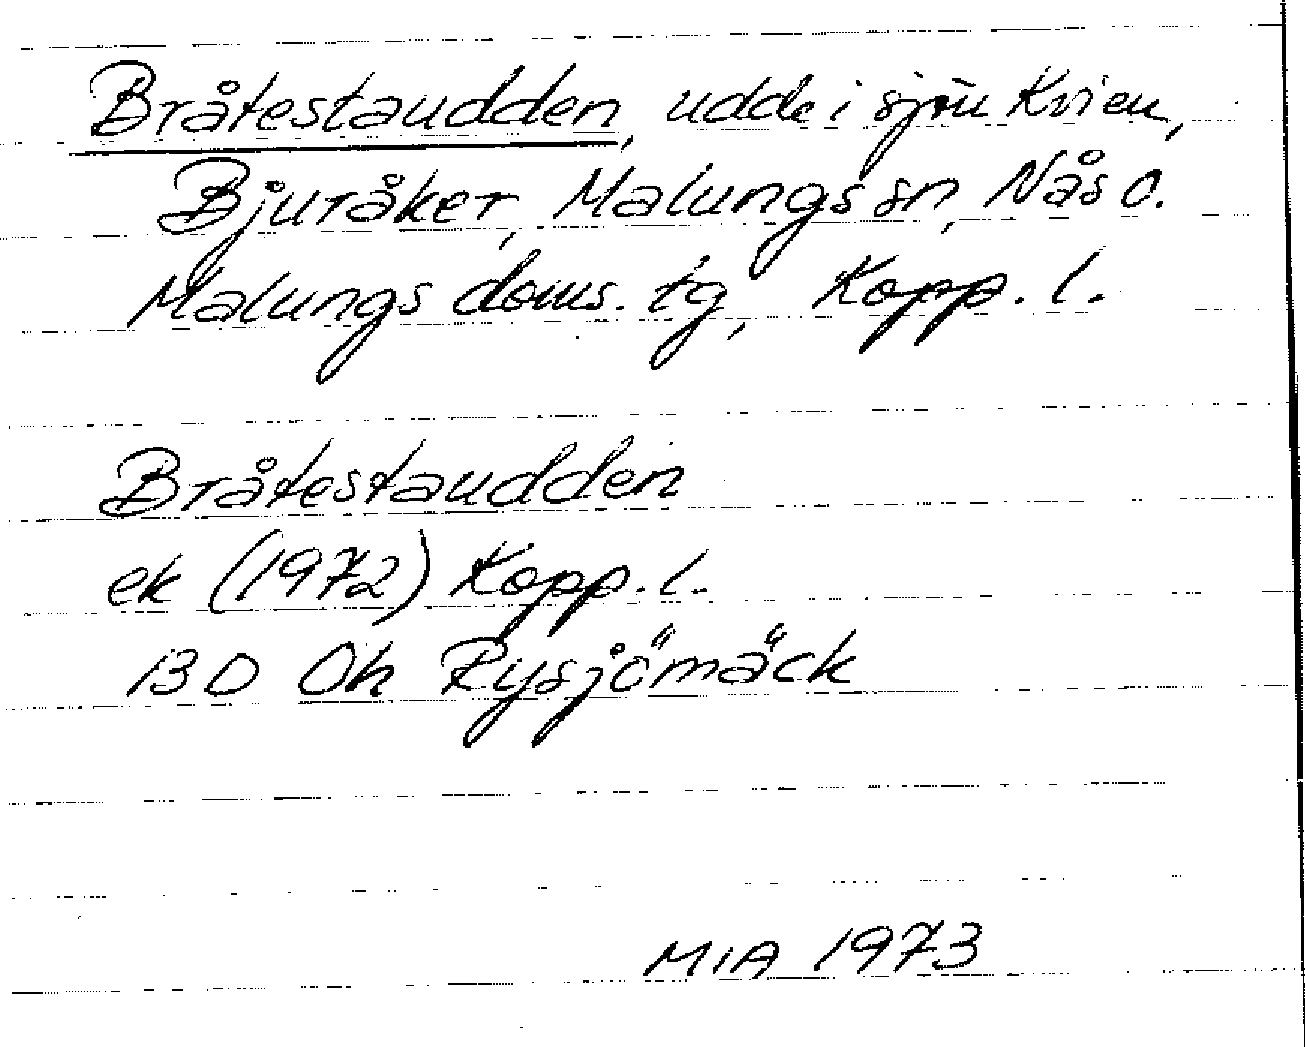 Bråtestaudden, udde i sjön Kvien,
Bjuråker, Malungs sn, Nås o.
Malungs doms. tg, Kopp. l.
Bråtestaudden
ek (1972) Kopp. l.
13D Oh Rysjömäck
MIA 1973